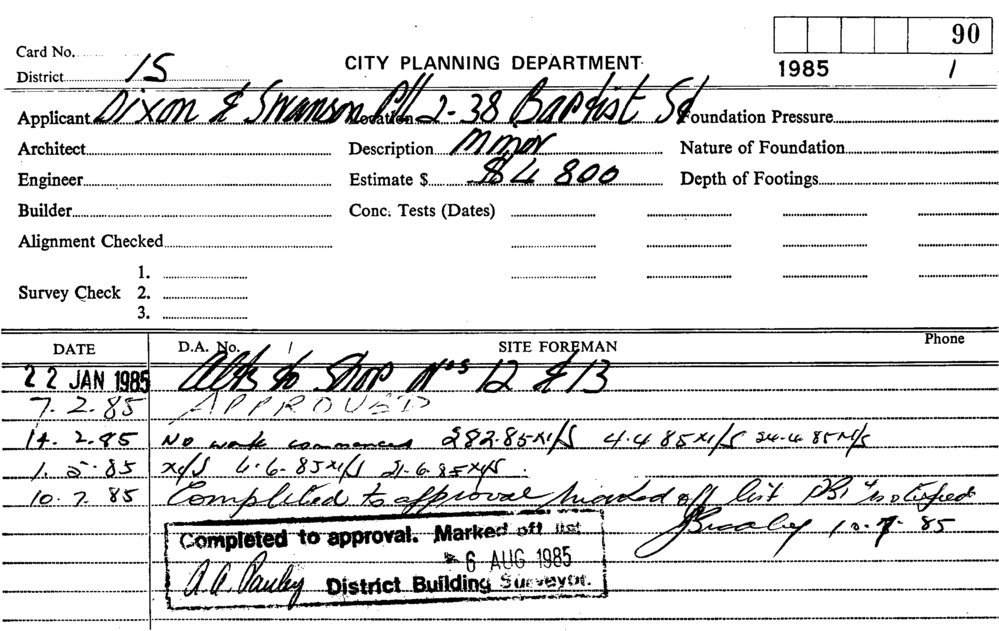 90
Card No.
District 15
CITY PLANNING DEPARTMENT
1985 1
Applicant Dixon & Swanson P/L Location 2-38 Baptist St Foundation Pressure
Architect Description Minor Nature of Foundation
Engineer Estimate $ $4 800 Depth of Footings
Builder Conc. Tests (Dates)
Alignment Checked
Survey Check 1.
2.
3.
DATE D.A. No. SITE FOREMAN Phone
22 JAN 1985 Alts to Shop Nos 12 & 13
7.2.85 APPROVED
14.2.85 No work commenced 282.85 4.4 85
1.5.85
10.7.85 Completed to approval marked off list notified
10.7.85
Completed to approval. Marked off list
6 AUG 1985
District Building Surveyor.